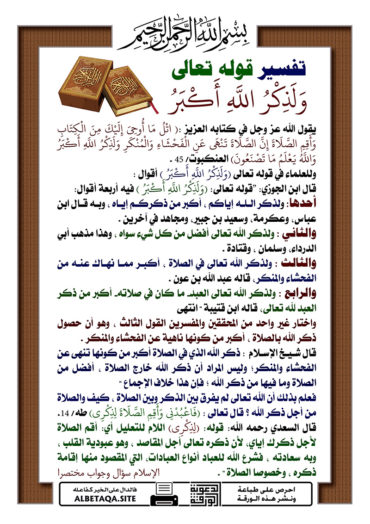 بسم الله الرحمن الرحيم
تفسير قوله تعالى
وَلَذِكْرُ اللَّهِ أَكْبَرُ
يقول الله عز وجل في كتابه العزيز :( اتْلُ مَا أُوحِيَ إِلَيْكَ مِنَ الْكِتَابِ
وَأَقِمِ الصَّلَاةَ إِنَّ الصَّلَاةَ تَنْهَى عَنِ الْفَحْشَاءِ وَالْمُنْكَرِ وَلَذِكْرُ اللَّهِ أَكْبَرُ
وَاللَّهُ يَعْلَمُ مَا تَصْنَعُونَ) العنكبوت/ 45 .
وللعلماء في قوله تعالى (وَلَذِكْرُ اللَّهِ أَكْبَرُ ) أقوال :
قال ابن الجوزي: "قوله تعالى: (وَلَذِكْرُ اللَّهِ أَكْبَرُ ) فيه أربعة أقوال:
أحدها: ولذكر الله إياكم ، أكبر من ذكركم إياه ، وبه قال ابن
عباس، وعكرمة، وسعيد بن جبير، ومجاهد في آخرين .
والثاني : ولذكر الله تعالى أفضل من كل شيء سواه ، وهذا مذهب أبي
الدرداء، وسلمان ، وقتادة .
والثالث : ولذكر الله تعالى في الصلاة ، أكبر مما نهاك عنه من
الفحشاء والمنكر، قاله عبد الله بن عون .
والرابع : ولذكر الله تعالى العبد ما كان في صلاته، أكبر من ذكر
العبد لله تعالى، قاله ابن قتيبة" انتهى
واختار غير واحد من المحققين والمفسرين القول الثالث ، وهو أن حصول
ذكر الله بالصلاة ، أكبر من كونها ناهية عن الفحشاء والمنكر .
قال شيخ الإسلام : ذكر الله الذي في الصلاة أكبر من كونها تنهى عن
الفحشاء والمنكر؛ وليس المراد أن ذكر الله خارج الصلاة ، أفضل من
الصلاة وما فيها من ذكر الله ؛ فإن هذا خلاف الإجماع"
فعلم بذلك أن الله تعالى لم يفرق بين الذكر وبين الصلاة ، كيف والصلاة
من أجل ذكر الله ؟ قال تعالى : (فَاعْبُدْنِي وَأَقِمِ الصَّلَاةَ لِذِكْرِي) طه/ 14.
قال السعدي رحمه الله: قوله: (لِذِكْرِي) اللام للتعليل أي: أقم الصلاة
لأجل ذكرك إياي، لأن ذكره تعالى أجل المقاصد ، وهو عبودية القلب ،
وبه سعادته ، فشرع الله للعباد أنواع العبادات، التي المقصود منها إقامة
ذكره ، وخصوصا الصلاة" .
الإسلام سؤال وجواب مختصرا
احرص على طباعة
ونشر هذه الورقة
الدعوية
الورقة
فالدال على الخير كفاعله
ALBETAQA.SITE